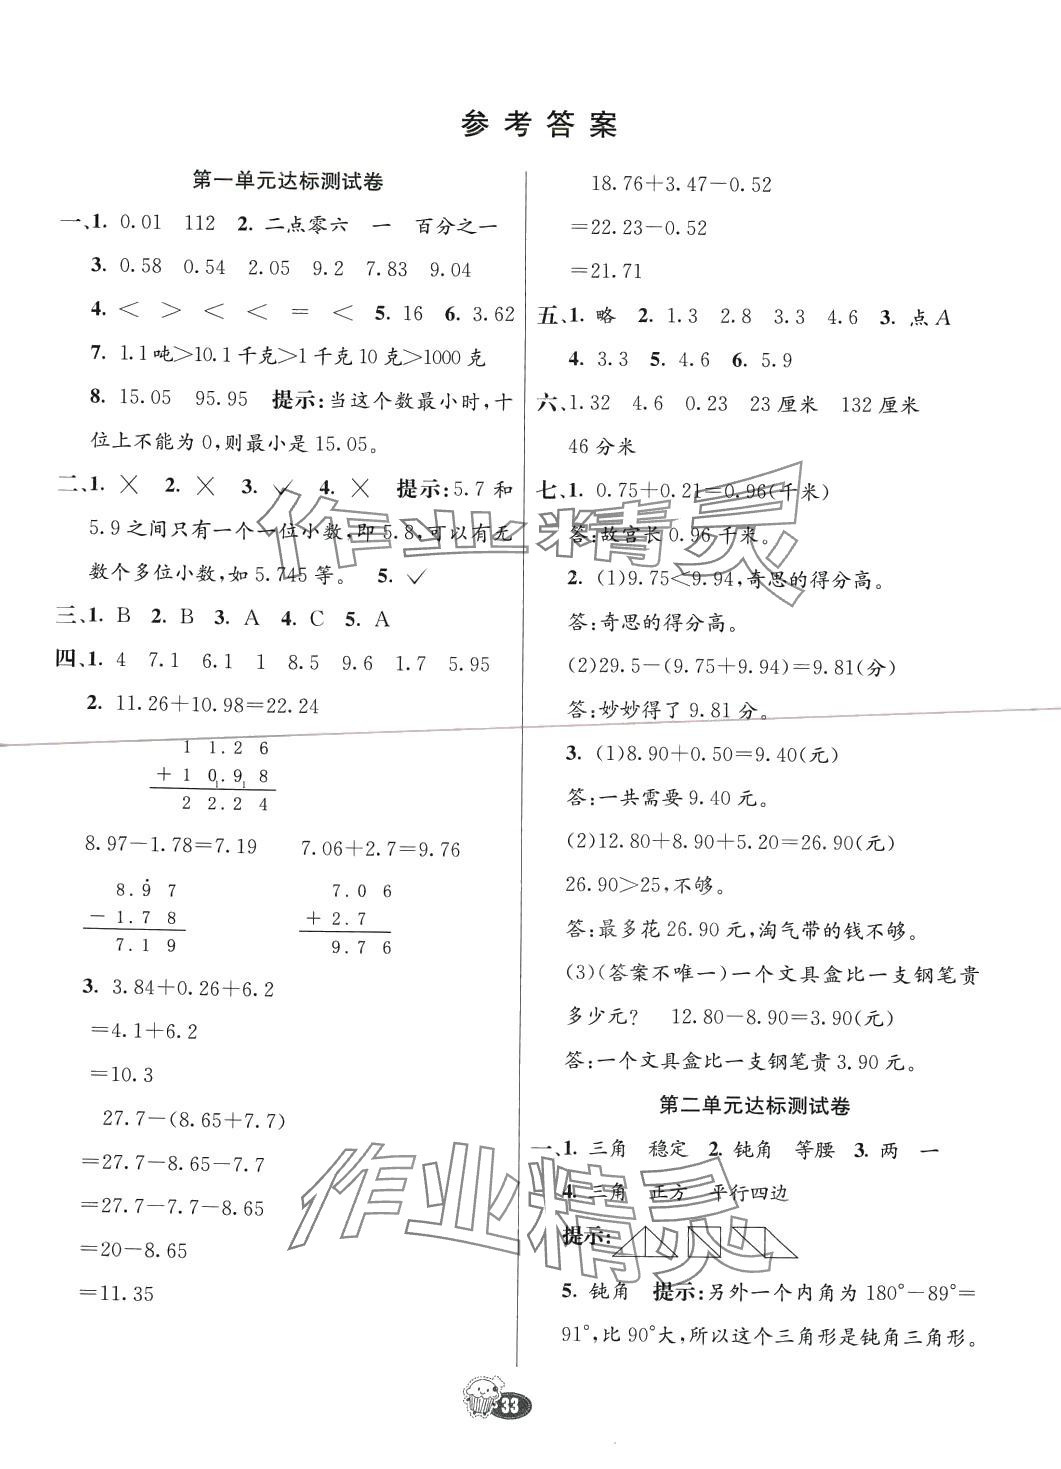 参考答案
第一单元达标测试卷
一、1. 0.01 112 2. 二点零六 一 百分之一
3. 0.58 0.54 2.05 9.2 7.83 9.04
4. < > < < = < 5. 16 6. 3.62
7. 1.1吨>10.1千克>1千克10克>1000克
8. 15.05 95.95 提示:当这个数最小时,十
位上不能为0,则最小是15.05。
二、1. × 2. × 3. ✓ 4. × 提示:5.7和
5.9之间只有一个一位小数,即5.8,可以有无
数个多位小数,如5.745等。 5. ✓
三、1. B 2. B 3. A 4. C 5. A
四、1. 4 7.1 6.1 1 8.5 9.6 1.7 5.95
2. 11.26+10.98=22.24
1 1.2 6
+1 0.9 8
2 2.2 4
8.97-1.78=7.19 7.06+2.7=9.76
8.9 7 7.0 6
-1.7 8 +2.7
7.1 9 9.7 6
3. 3.84+0.26+6.2
=4.1+6.2
=10.3
27.7-(8.65+7.7)
=27.7-8.65-7.7
=27.7-7.7-8.65
=20-8.65
=11.35
18.76+3.47-0.52
=22.23-0.52
=21.71
五、1. 略 2. 1.3 2.8 3.3 4.6 3. 点A
4. 3.3 5. 4.6 6. 5.9
六、1.32 4.6 0.23 23厘米 132厘米
46分米
七、1. 0.75+0.21=0.96(千米)
答:故宫长0.96千米。
2. (1)9.75<9.94,奇思的得分高。
答:奇思的得分高。
(2)29.5-(9.75+9.94)=9.81(分)
答:妙妙得了9.81分。
3. (1)8.90+0.50=9.40(元)
答:一共需要9.40元。
(2)12.80+8.90+5.20=26.90(元)
26.90>25,不够。
答:最多花26.90元,淘气带的钱不够。
(3)(答案不唯一)一个文具盒比一支钢笔贵
多少元? 12.80-8.90=3.90(元)
答:一个文具盒比一支钢笔贵3.90元。
第二单元达标测试卷
一、1. 三角 稳定 2. 钝角 等腰 3. 两 一
4. 三角 正方 平行四边
提示:
5. 钝角 提示:另外一个内角为180°-89°=
91°,比90°大,所以这个三角形是钝角三角形。
33
作业精灵
作业精灵